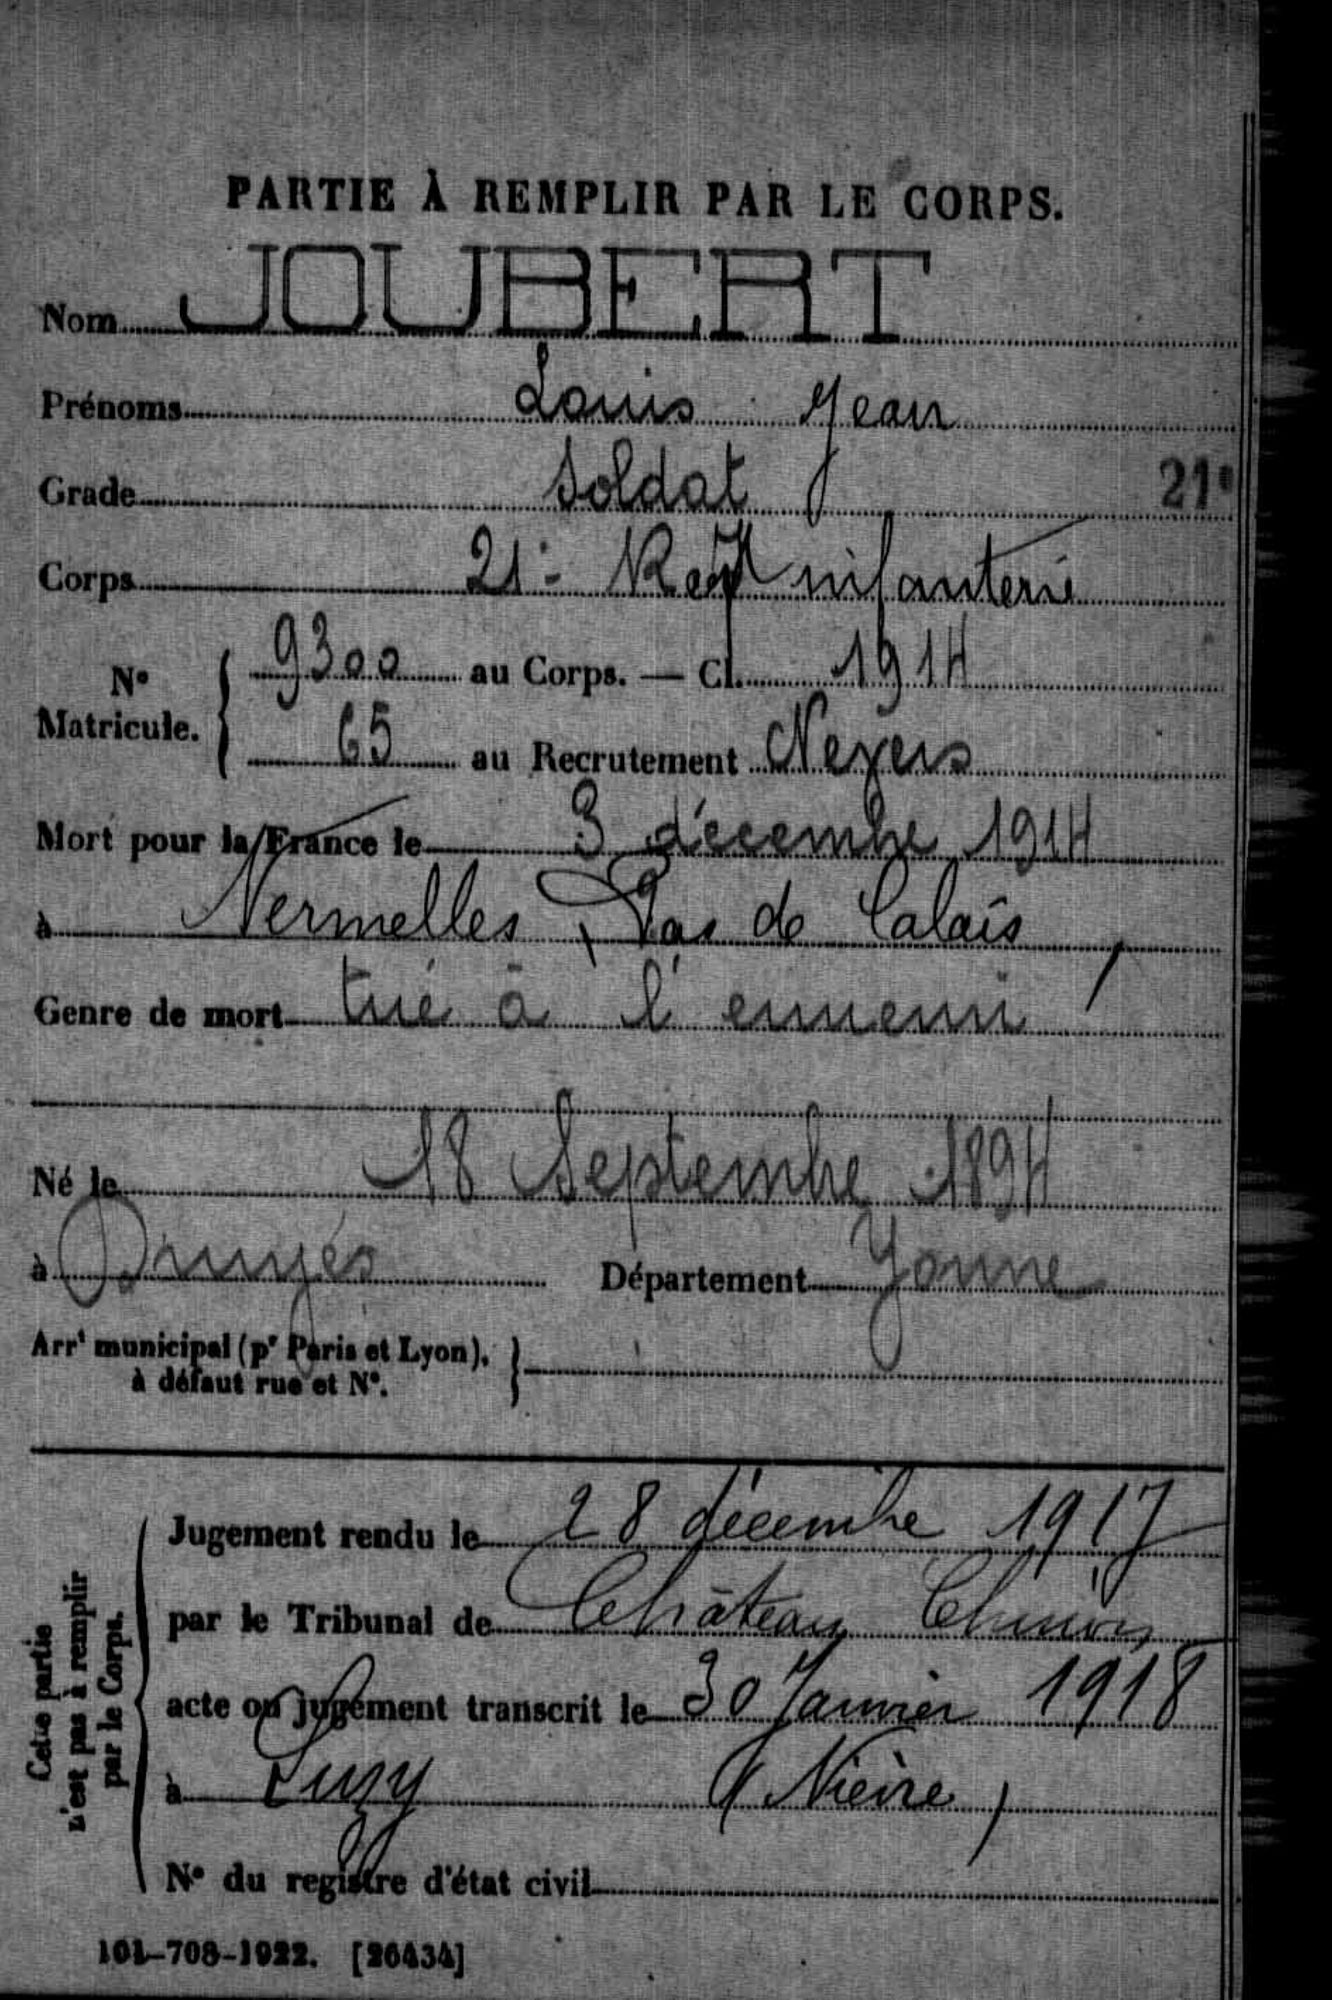 PARTIE À REMPLIR PAR LE CORPS.
Nom JOUBERT
Prénoms Louis Jean
Grade Soldat 21e
Corps 21e Regt infanterie
No Matricule. { 9300 au Corps. — Cl. 1914
65 au Recrutement Nevers
Mort pour la France le 3 décembre 1914
à Vermelles (Pas de Calais)
Genre de mort tué à l'ennemi
Né le 18 Septembre 1894
à Département Yonne
Arrt municipal (pr Paris et Lyon), à défaut rue et No. }
Cette partie n'est pas à remplir par le Corps.
Jugement rendu le 28 décembre 1917
par le Tribunal de Château Chinon
acte ou jugement transcrit le 30 Janvier 1918
à Luzy (Nièvre)
No du registre d'état civil
101-708-1922. [26434]